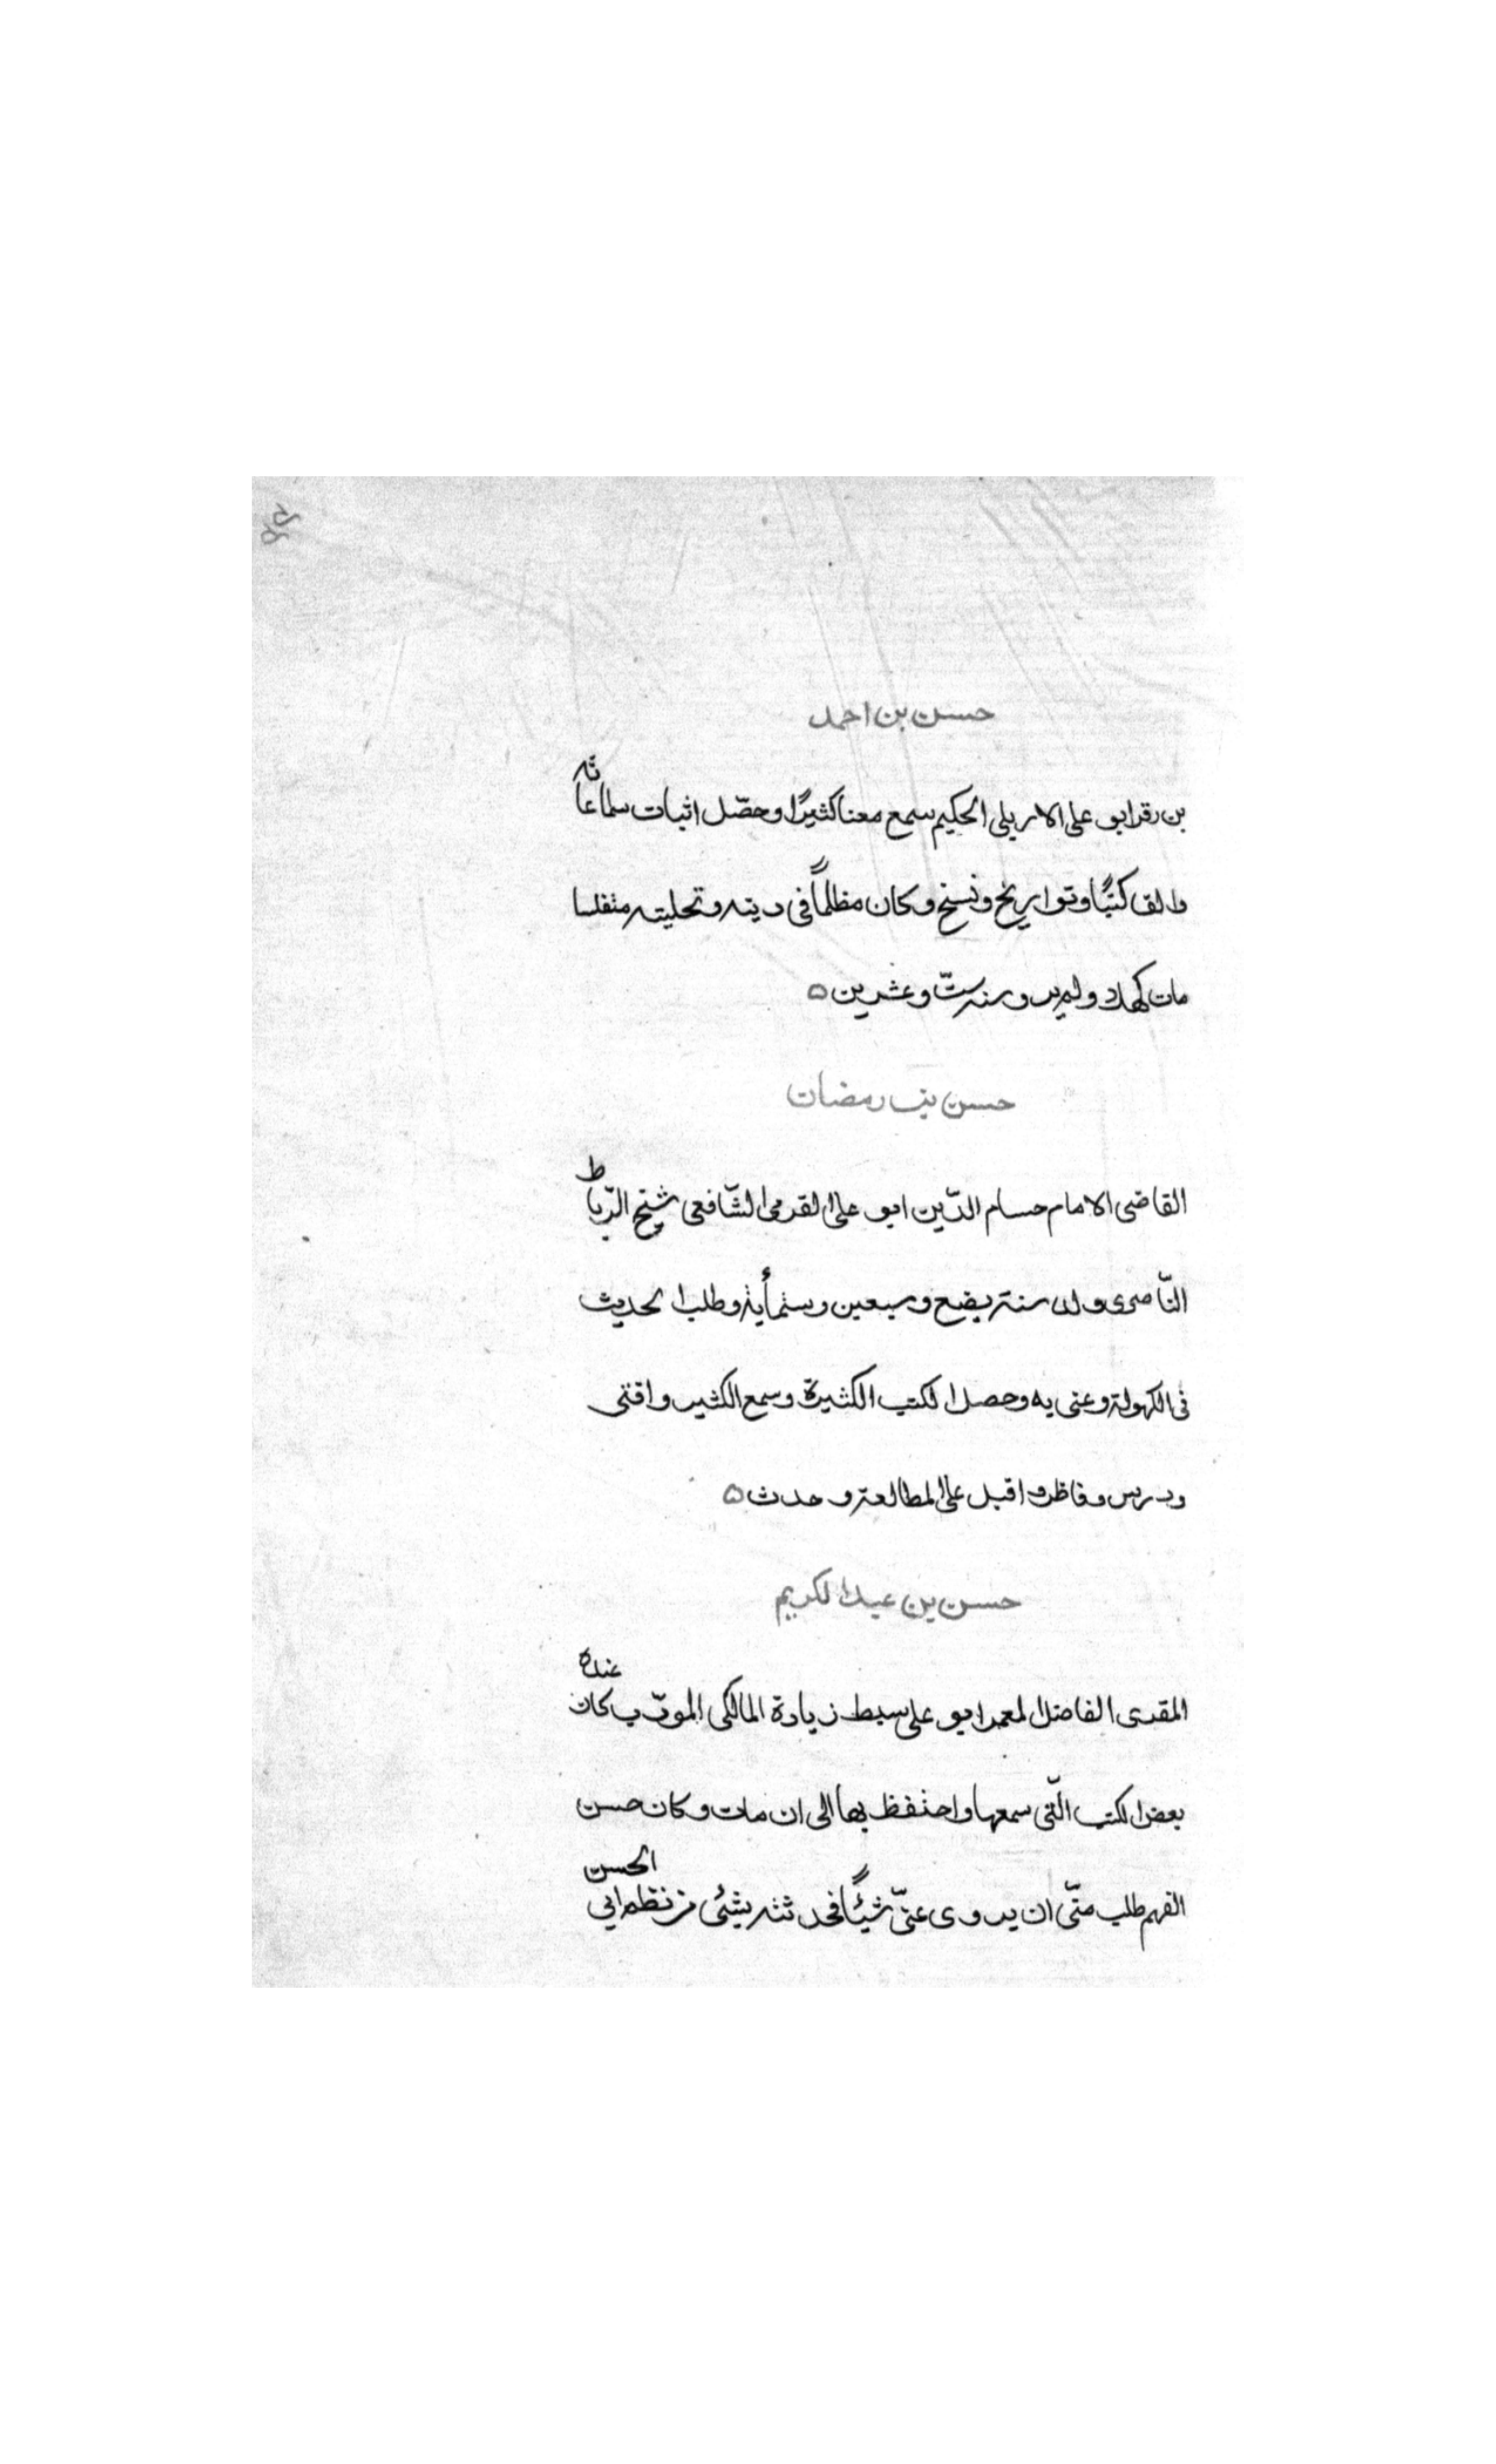 حسن بن احمد
بن رقر ابو علی الاربلی الحکیم سمع معنا کثیرًا وحصّل اثبات سماعاته
والف کتبًا وتواریخ ونسخ وکان مظلمًا فی دینه وتحلیته متفلسا
مات کهلا سنة ستّ وعشرین ه
حسن بن رمضان
القاضی الامام حسام الدّین ابو علی القرمی الشّافعی شیخ الرّباط
النّاصری ولد سنة بضع وسبعین وستمأیة وطلب الحدیث
فی الکهولة وعنی به وحصل الکتب الکثیرة وسمع الکثیر واقتنی
ودرس وناظر واقبل علی المطالعة وحدث ه
حسن بن عبد الکریم
المقری الفاضل المعمر ابو علی سبط زیادة المالکی المودّب کان عنده
بعض الکتب الّتی سمعها واحتفظ بها الی ان مات وکان حسن
الفهم طلب منّی ان یروی عنّی شیئًا فحدثته بشئی من نظم ابی الحسن